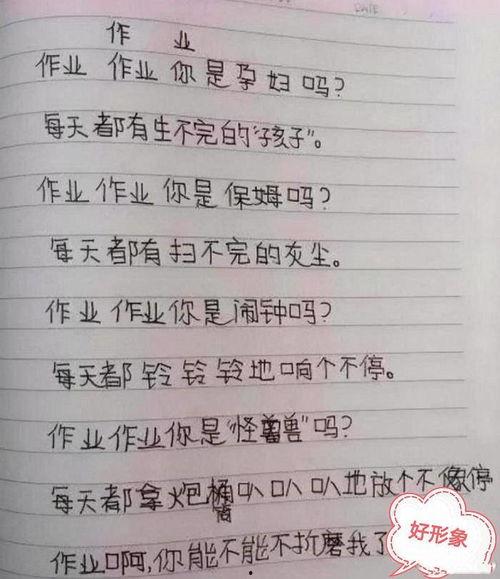 DATE
作 业
作业 作业你是孕妇吗?
每天都有生不完的“孩子”。
作业 作业 你是保姆吗?
每天都有扫不完的灰尘。
作业 作业你是闹钟吗?
每天都铃铃铃地响个不停。
作业作业你是“怪兽”吗?
每天都拿火炮桶叭叭叭地放个不停
筒
作业啊,你能不能不折磨我了
好形象